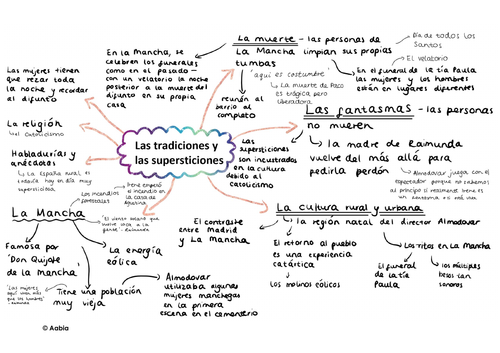 La muerte - las personas de
La Mancha limpian sus propias
tumbas
Día de todos los
Santos
El velatorio
En el funeral de la tía Paula
las mujeres y los hombres
están en lugares diferentes
"aquí es costumbre"
La muerte de Paco
es trágica pero
liberadora
En La Mancha, se
celebren los funerales
como en el pasado -
con un velatorio la noche
posterior a la muerte del
difunto en su propia
casa
reunión al
barrio al
completo
Las mujeres tienen
que rezar toda
la noche y recordar
al difunto
La religión
el catolicismo
Habladurías y
anécdotas
La España rural es
todavía hoy en día muy
supersticiosa
Las tradiciones y
las supersticiones
Las
supersticiones
son incustradas
en la cultura
debido al
catolicismo
Los fantasmas - las personas
no mueren
la madre de Raimunda
vuelve del más allá para
pedirla perdón
Almodovar juega con el
espectador porque no sabemos
al principio si realmente tiene es
un fantasma o si está viva
La cultura rural y urbana
la región natal del director Almodovar
El retorno al pueblo
es una experiencia
catártica
Los molinos eólicos
Los ritos en La Mancha
El funeral
de la tía
Paula
los múltiples
besos tan
sonoros
El contraste
entre Madrid
y La Mancha
La Mancha
Los incendios
forestales
Irene empezó
el incendio en
la casa de
Agustina
La energía
eólica
Famosa por
'Don Quijote
de la Mancha'
Tiene una población
muy vieja
Almodovar
utilizaba algunas
mujeres manchegas
en la primera
escena en el cementerio
© Aabla